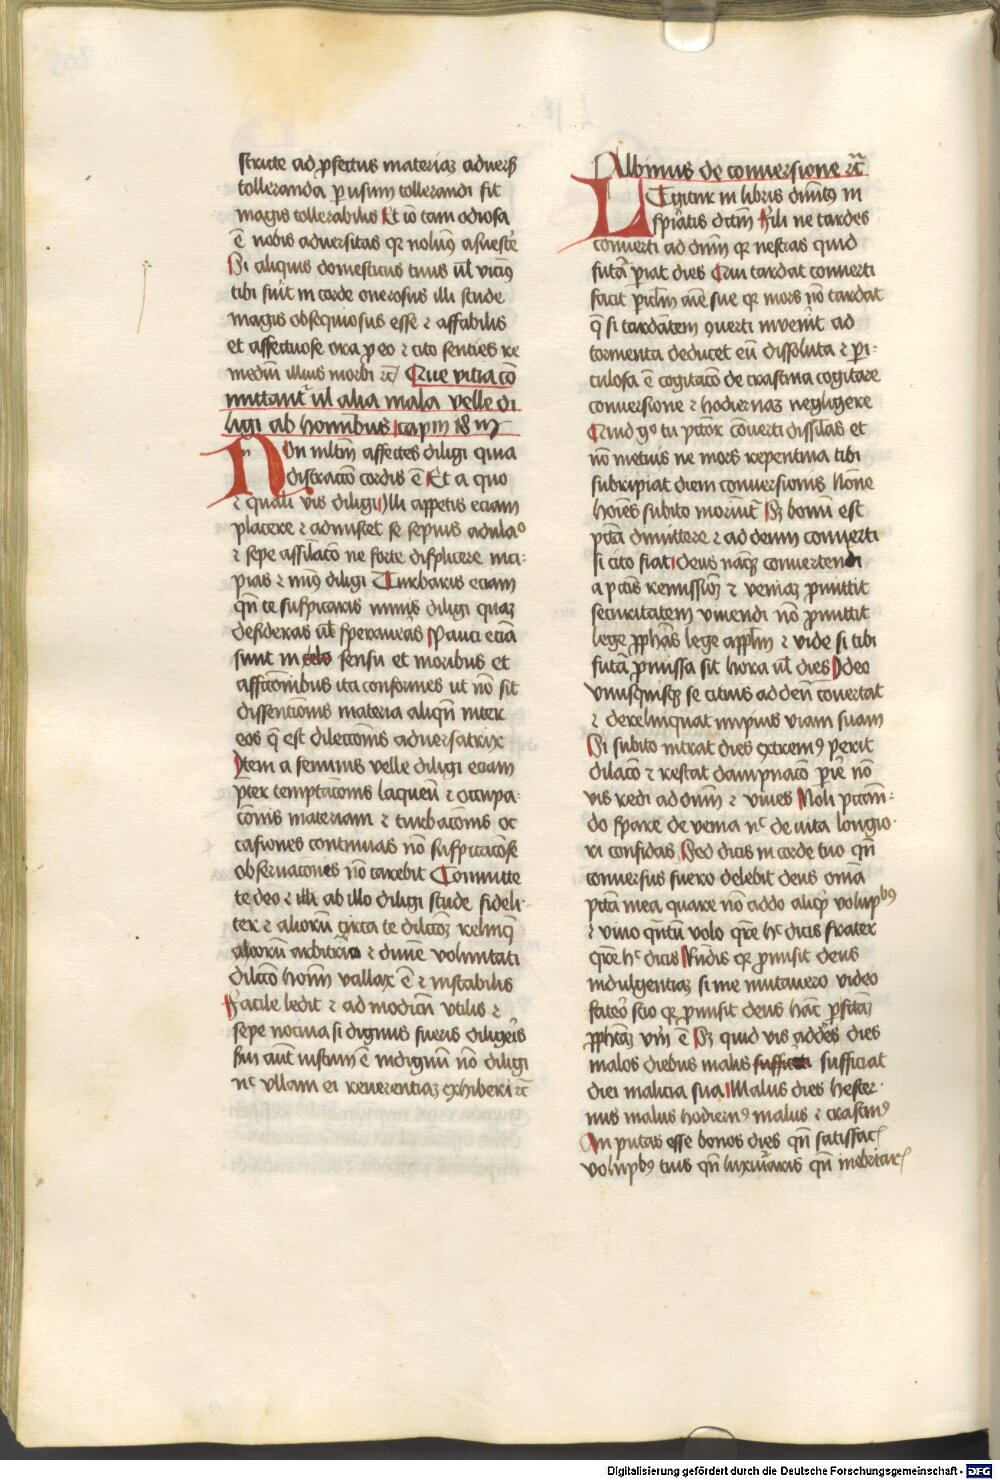 stricte ad ꝓfectus materiaꝫ adversꝫ
tolleranda p usum tollerandi sit
magis tollerabilis Et iō tam odiosa
ē nobis adversitas qꝛ nolumꝰ assuesce
Si aliquis domesticus tuus ul vicinꝰ
tibi fuit in corde onerosus illi stude
magis obsequiosus esse ⁊ affabilis
et affectuose ora ꝓ eo ⁊ cito senties re
mediū illius morbi ⁊c̄ Que vitia cō
mittant᷑ ul alia mala velle di
ligi ab hominibus capm 18m
Non mltm̄ affectes diligi quia
distractō cordis ē Et a quo
⁊ quali vis diligi Illi appetis eciam
placere ⁊ admiscet se sepius adulaᵒ
⁊ sepe assilatō ne forte displicere inci-
pias ⁊ minꝰ diligi Turbaris eciam
qn̄ te suspicaris minus diligi quaꝫ
desideras ul speraveras Pauci eciā
sunt in celo sensu et moribus et
affectōnibus ita conformes ut nō sit
dissentionis materia aliqn̄ inter
eos q̄ est dilectionis adversatrix
Item a feminis velle diligi eciam
pter temptatōnis laqueū ⁊ occupa-
cōnis materiam ⁊ turbacōnis oc
casiones continuas nō suspicacōse
observacōnes nō carebit Committe
te deo ⁊ illi ab illo diligi stude fideli-
ter ⁊ aliorū circa te dilectōꝫ relinq̄
aliorū arbitrio ⁊ divine voluntati
dilectō hoīm vallax ē ⁊ instabilis
Facile ledit ⁊ ad modicū utilis ⁊
sepe nociva si dignus fueris diligeris
sin aūt iustum ē indignū nō diligi
nᶜ ullam ei reverentiaꝫ exhiberi ⁊c̄
Albinus de conversione ⁊c̄
Legitur in libris divinitꝰ in
spiratis dictm̄ Fili ne tardes
converti ad dn̄m qꝛ nescias quid
futā pariat dies Qui tardat converti
facit periclm̄ aīe sue qꝛ mors nō tardat
q̄ si tardantem ꝯverti invenit ad
tormenta deducet eū dissoluta ⁊ peri-
culosa ē cogitacō de crastina cogitare
conversione ⁊ hodiernaꝫ negligere
Quid gᵒ tu pctōr cōverti dissilas et
nō metuis ne mors repentina tibi
subripiat diem conversionis Nōne
hoīes subito moriunt᷑ Sꝫ bonū est
pctā dimittere ⁊ ad deum converti
si cito fiat deus nāqꝫ convertendi
a pctīs remissionē ⁊ veniaꝫ promittit
securitatem vivendi nō promittit
lege ꝓphās lege apłm ⁊ vide si tibi
futā ꝓmissa sit hora ul dies Ideo
Unusquisqꝫ se citius ad deū cōvertat
⁊ derelinquat impius viam suam
Si subito intrat dies extremꝰ perit
dilacō ⁊ restat dampnacō perīe nō
vis redi ad dn̄m ⁊ vives Noli pctān-
do sparē de venia nᶜ de vita longio-
ri confidas Sed dicis in corde tuo qn̄
conversus fuero delebit deus omā
pctā mea quare nō addo aliqd volupbꝰ
⁊ vivo qn̄tū volo qre hᶜ dicis frater
qre hᶜ dicis Rn̄dis qꝛ promisit deus
indulgentiaꝫ si me mutavero video
fateor scio qꝛ promisit deus hāc ꝑ scāꝫ
ꝓphetaꝫ verū ē Sꝫ quid vis addes dies
malos diebus malis sufficiat
diei malicia sua Malus dies hester-
nus malus hodiernꝰ malus ⁊ crastinꝰ
An putas esse bonos dies qn̄ satisfac
volupbꝰ tuis qn̄ luxuriaris qn̄ inebriar
Digitalisierung gefördert durch die Deutsche Forschungsgemeinschaft - DFG